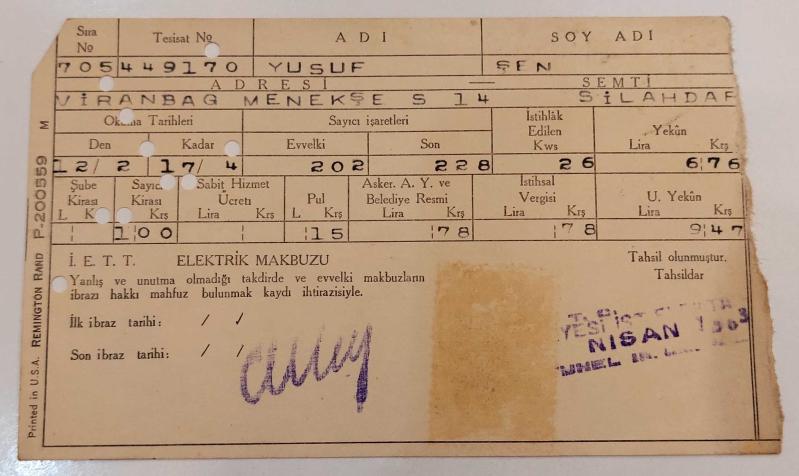 Sıra No Tesisat No ADI SOY ADI
705 449170 YUSUF ŞEN
ADRESİ — SEMTİ
VİRANBAG MENEKŞE S 14 SİLAHDAR
Okuma Tarihleri Sayıcı işaretleri İstihlâk Edilen Kws Yekûn
Den Kadar Evvelki Son Lira Krş
12/2 17/4 202 228 26 6 76
Şube Kirası Sayıcı Kirası Sabit Hizmet Ücreti Pul Asker. A. Y. ve Belediye Resmi İstihsal Vergisi U. Yekûn
L K Krş Lira Krş L Krş Lira Krş Lira Krş Lira Krş
1 00 15 78 78 9 47
İ. E. T. T. ELEKTRİK MAKBUZU
Yanlış ve unutma olmadığı takdirde ve evvelki makbuzların
ibrazı hakkı mahfuz bulunmak kaydı ihtirazisiyle.
Tahsil olunmuştur.
Tahsildar
İlk ibraz tarihi: / /
Son ibraz tarihi: / /
NİSAN 1963
Printed in U.S.A. REMINGTON RAND P-200559 M